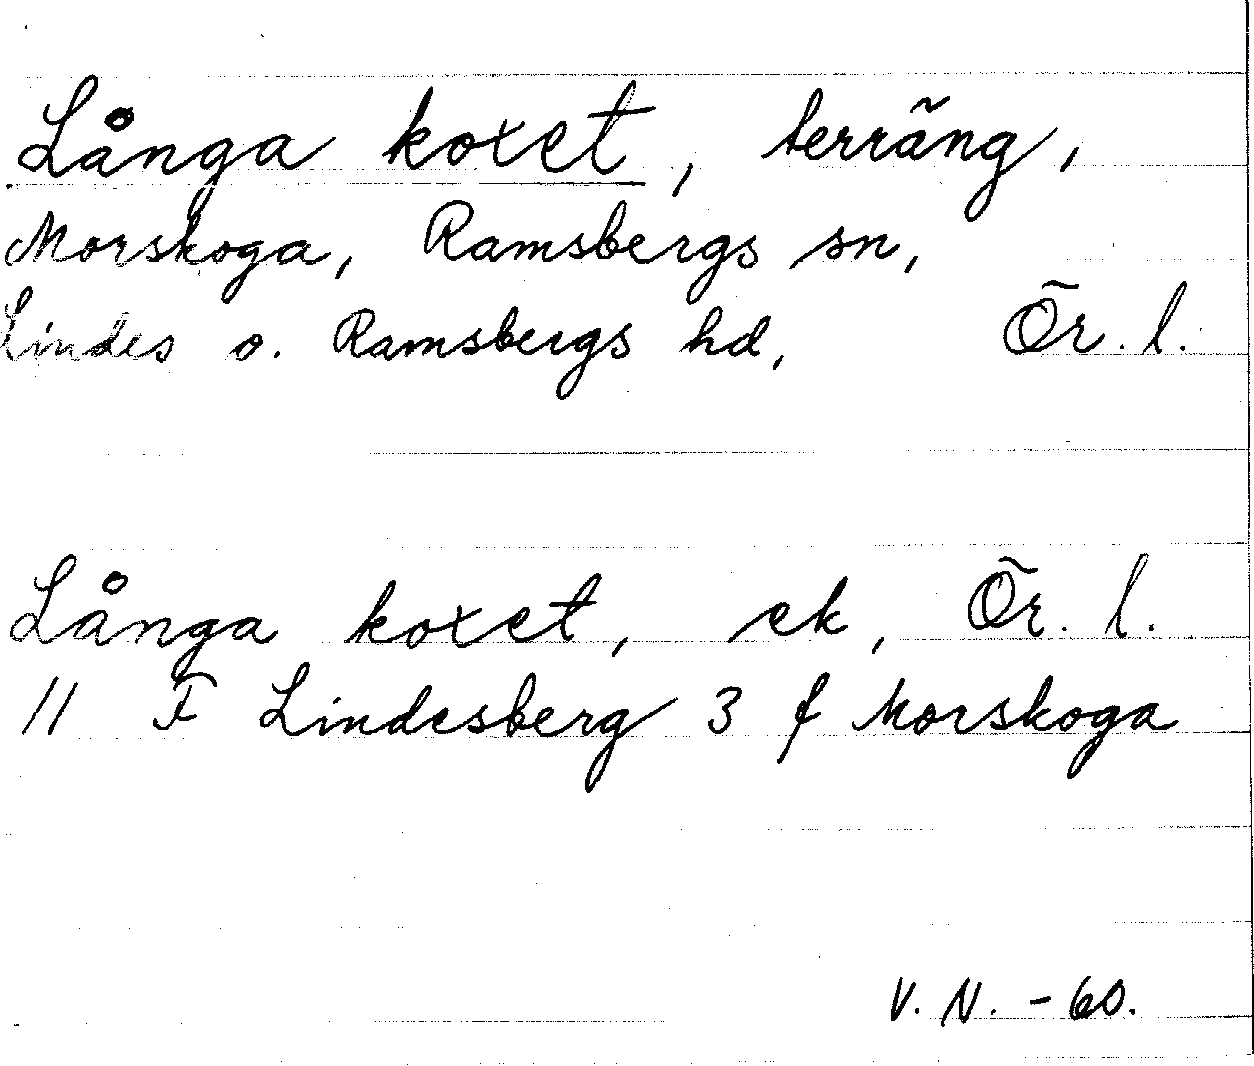 Långa koxet, terräng,
Morskoga, Ramsbergs sn,
Lindes o. Ramsbergs hd, Ör. l.
Långa koxet, ek, Ör. l.
11 F Lindesberg 3 f Morskoga
V. N. - 60.